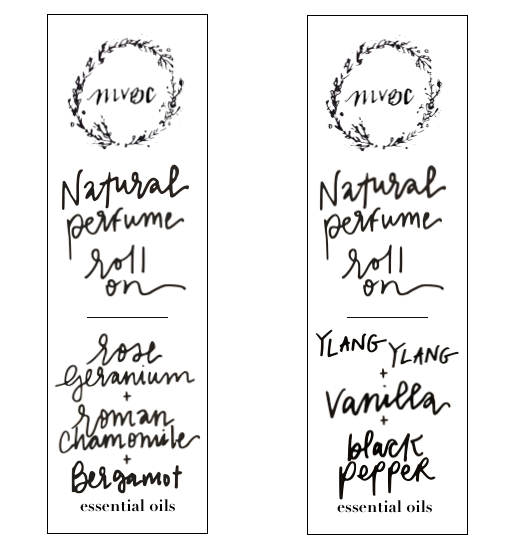 mvoc
Natural
perfume
roll
on
rose
Geranium
+
roman
chamomile
+
Bergamot
essential oils
mvoc
Natural
perfume
roll
on
YLANG YLANG
+
Vanilla
+
black
pepper
essential oils